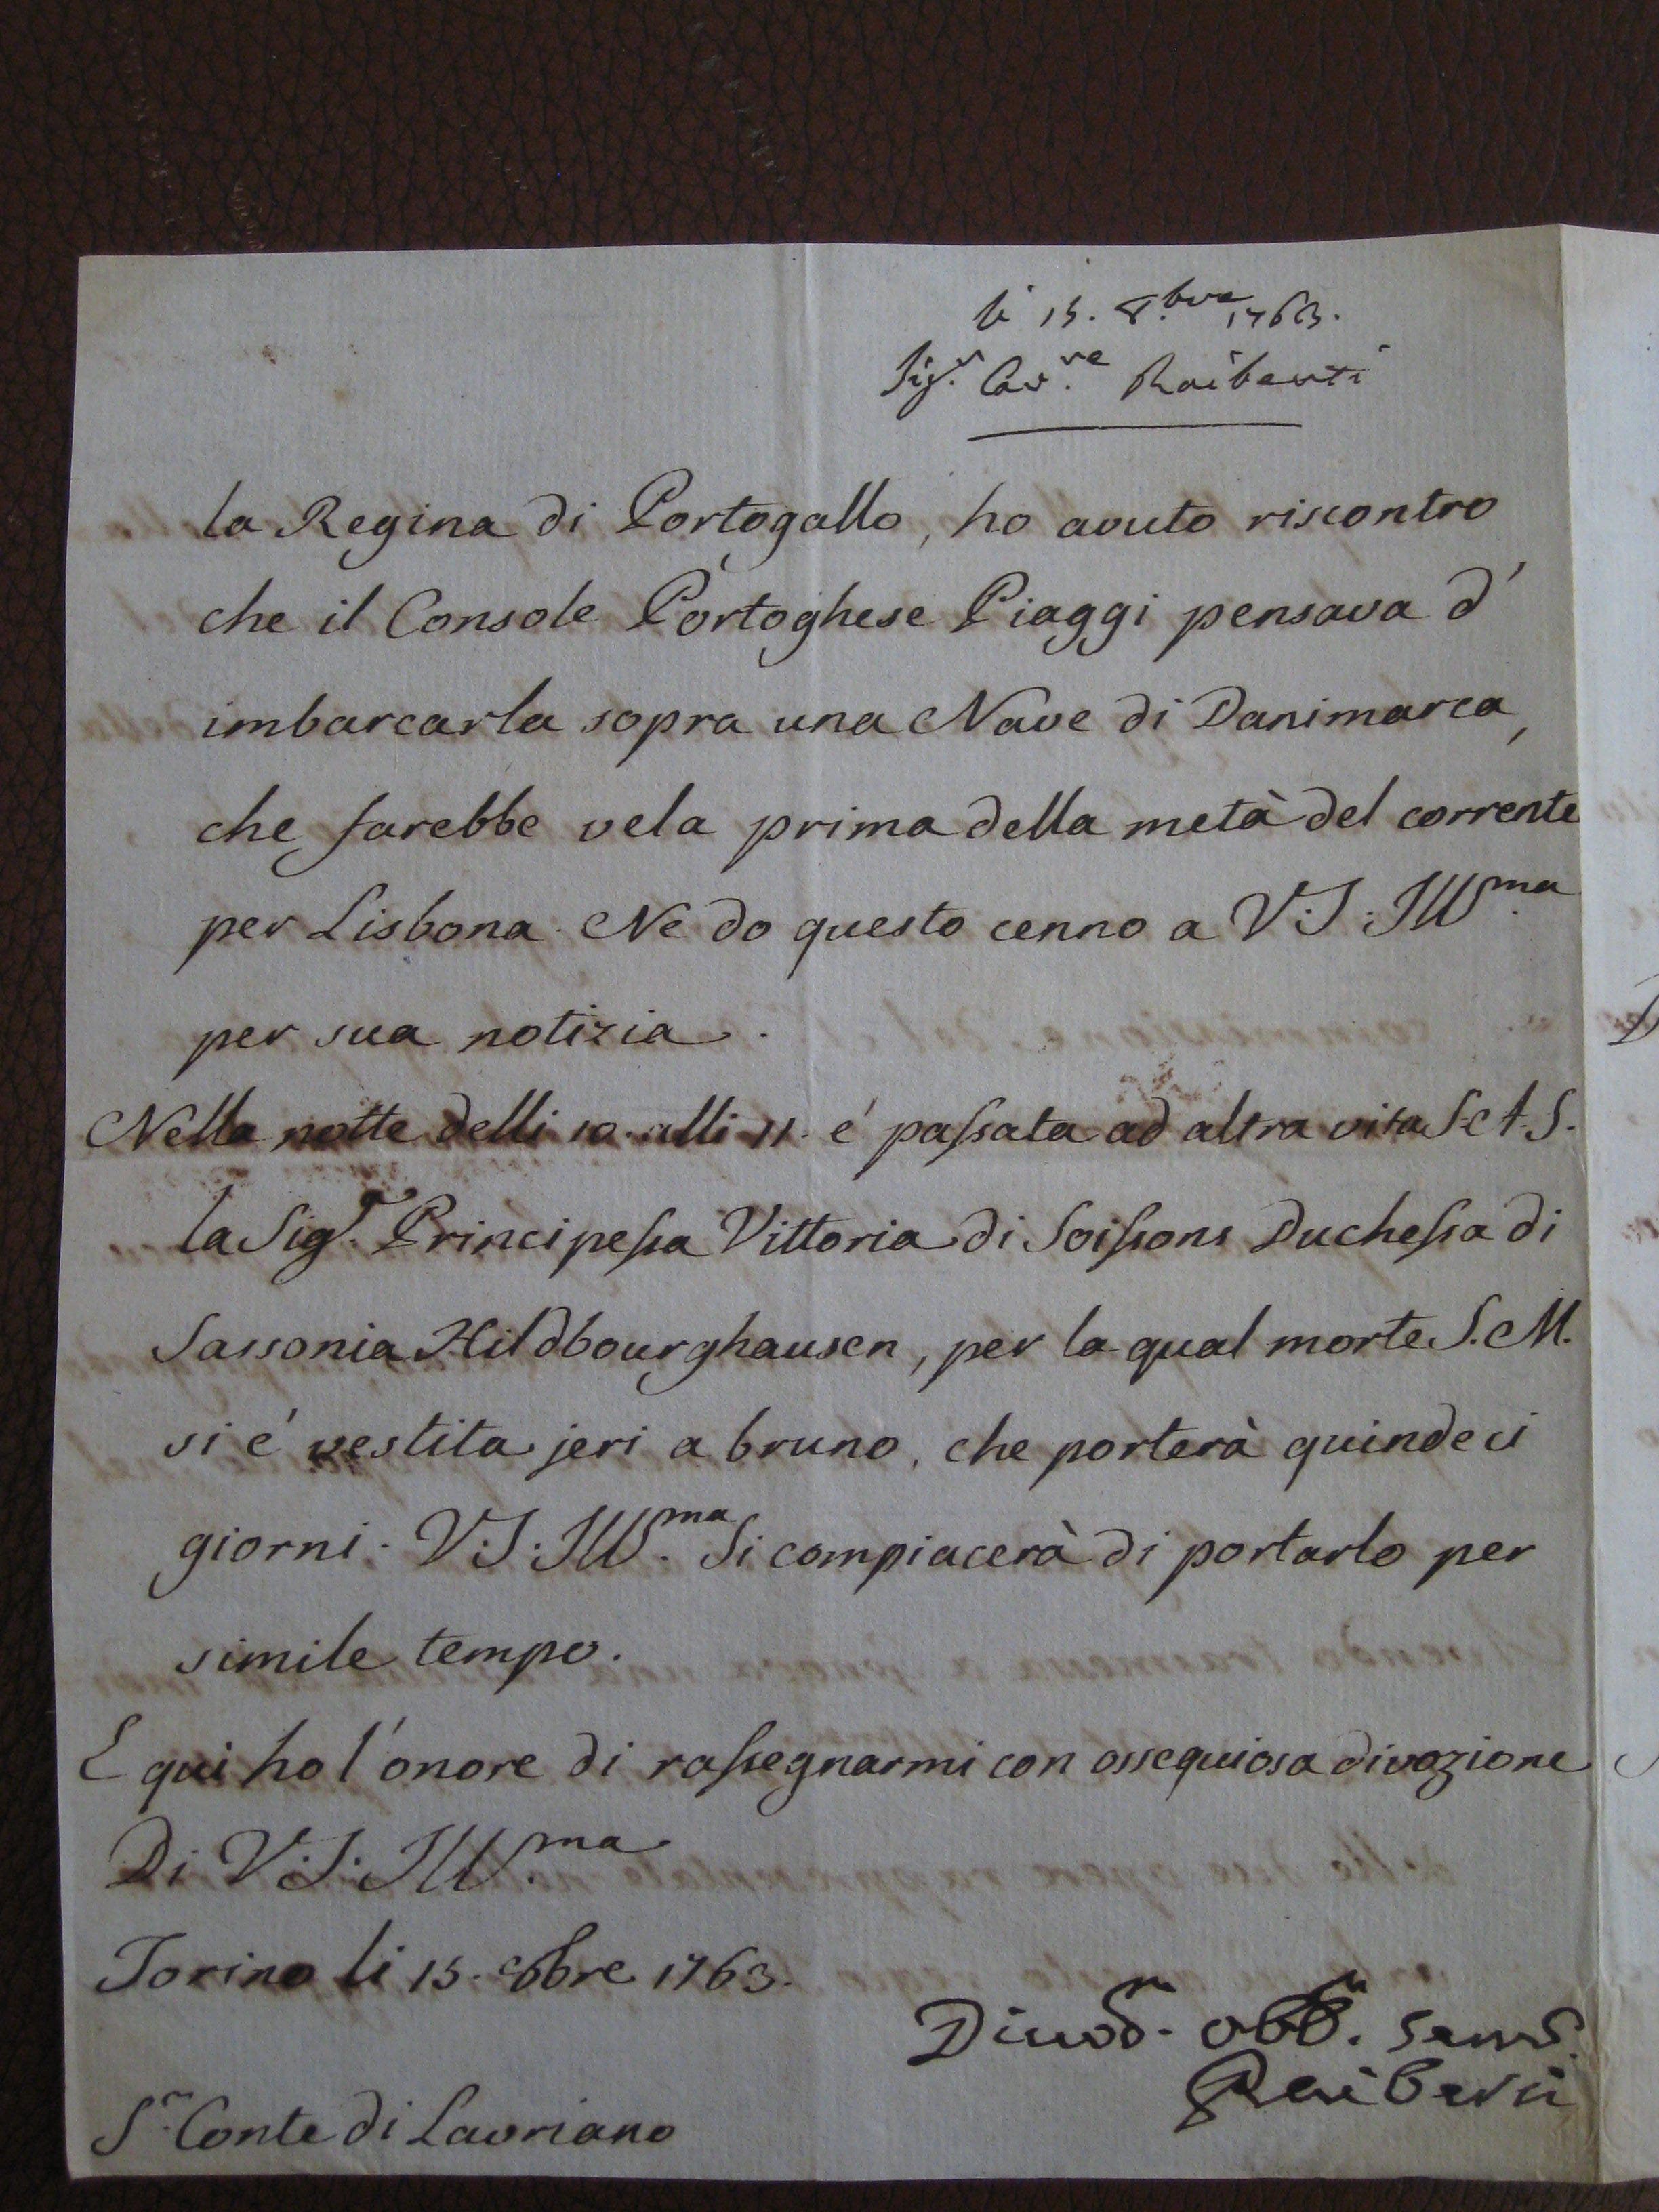 li 15. 8.bre 1763.
Sig.r Cav.re Raiberti
la Regina di Portogallo, ho avuto riscontro
che il Console Portoghese Piaggi pensava d'
imbarcarla sopra una Nave di Danimarca,
che farebbe vela prima della metà del corrente
per Lisbona. Ne do questo cenno a V.S. Ill.ma
per sua notizia.
Nella notte delli 10. alli 11. é passata ad altra vita S. A. S.
la Sig.r Principessa Vittoria di Soissons Duchessa di
Sassonia Hildbourghausen, per la qual morte S. M.
si é vestita jeri a bruno, che porterà quindeci
giorni. V.S. Ill.ma Si compiacerà di portarlo per
simile tempo.
E qui ho l'onore di rassegnarmi con ossequiosa divozione
Di V.S. Ill.ma
Torino li 15. 8bre 1763.
Raiberti
S.r Conte di Lavriano